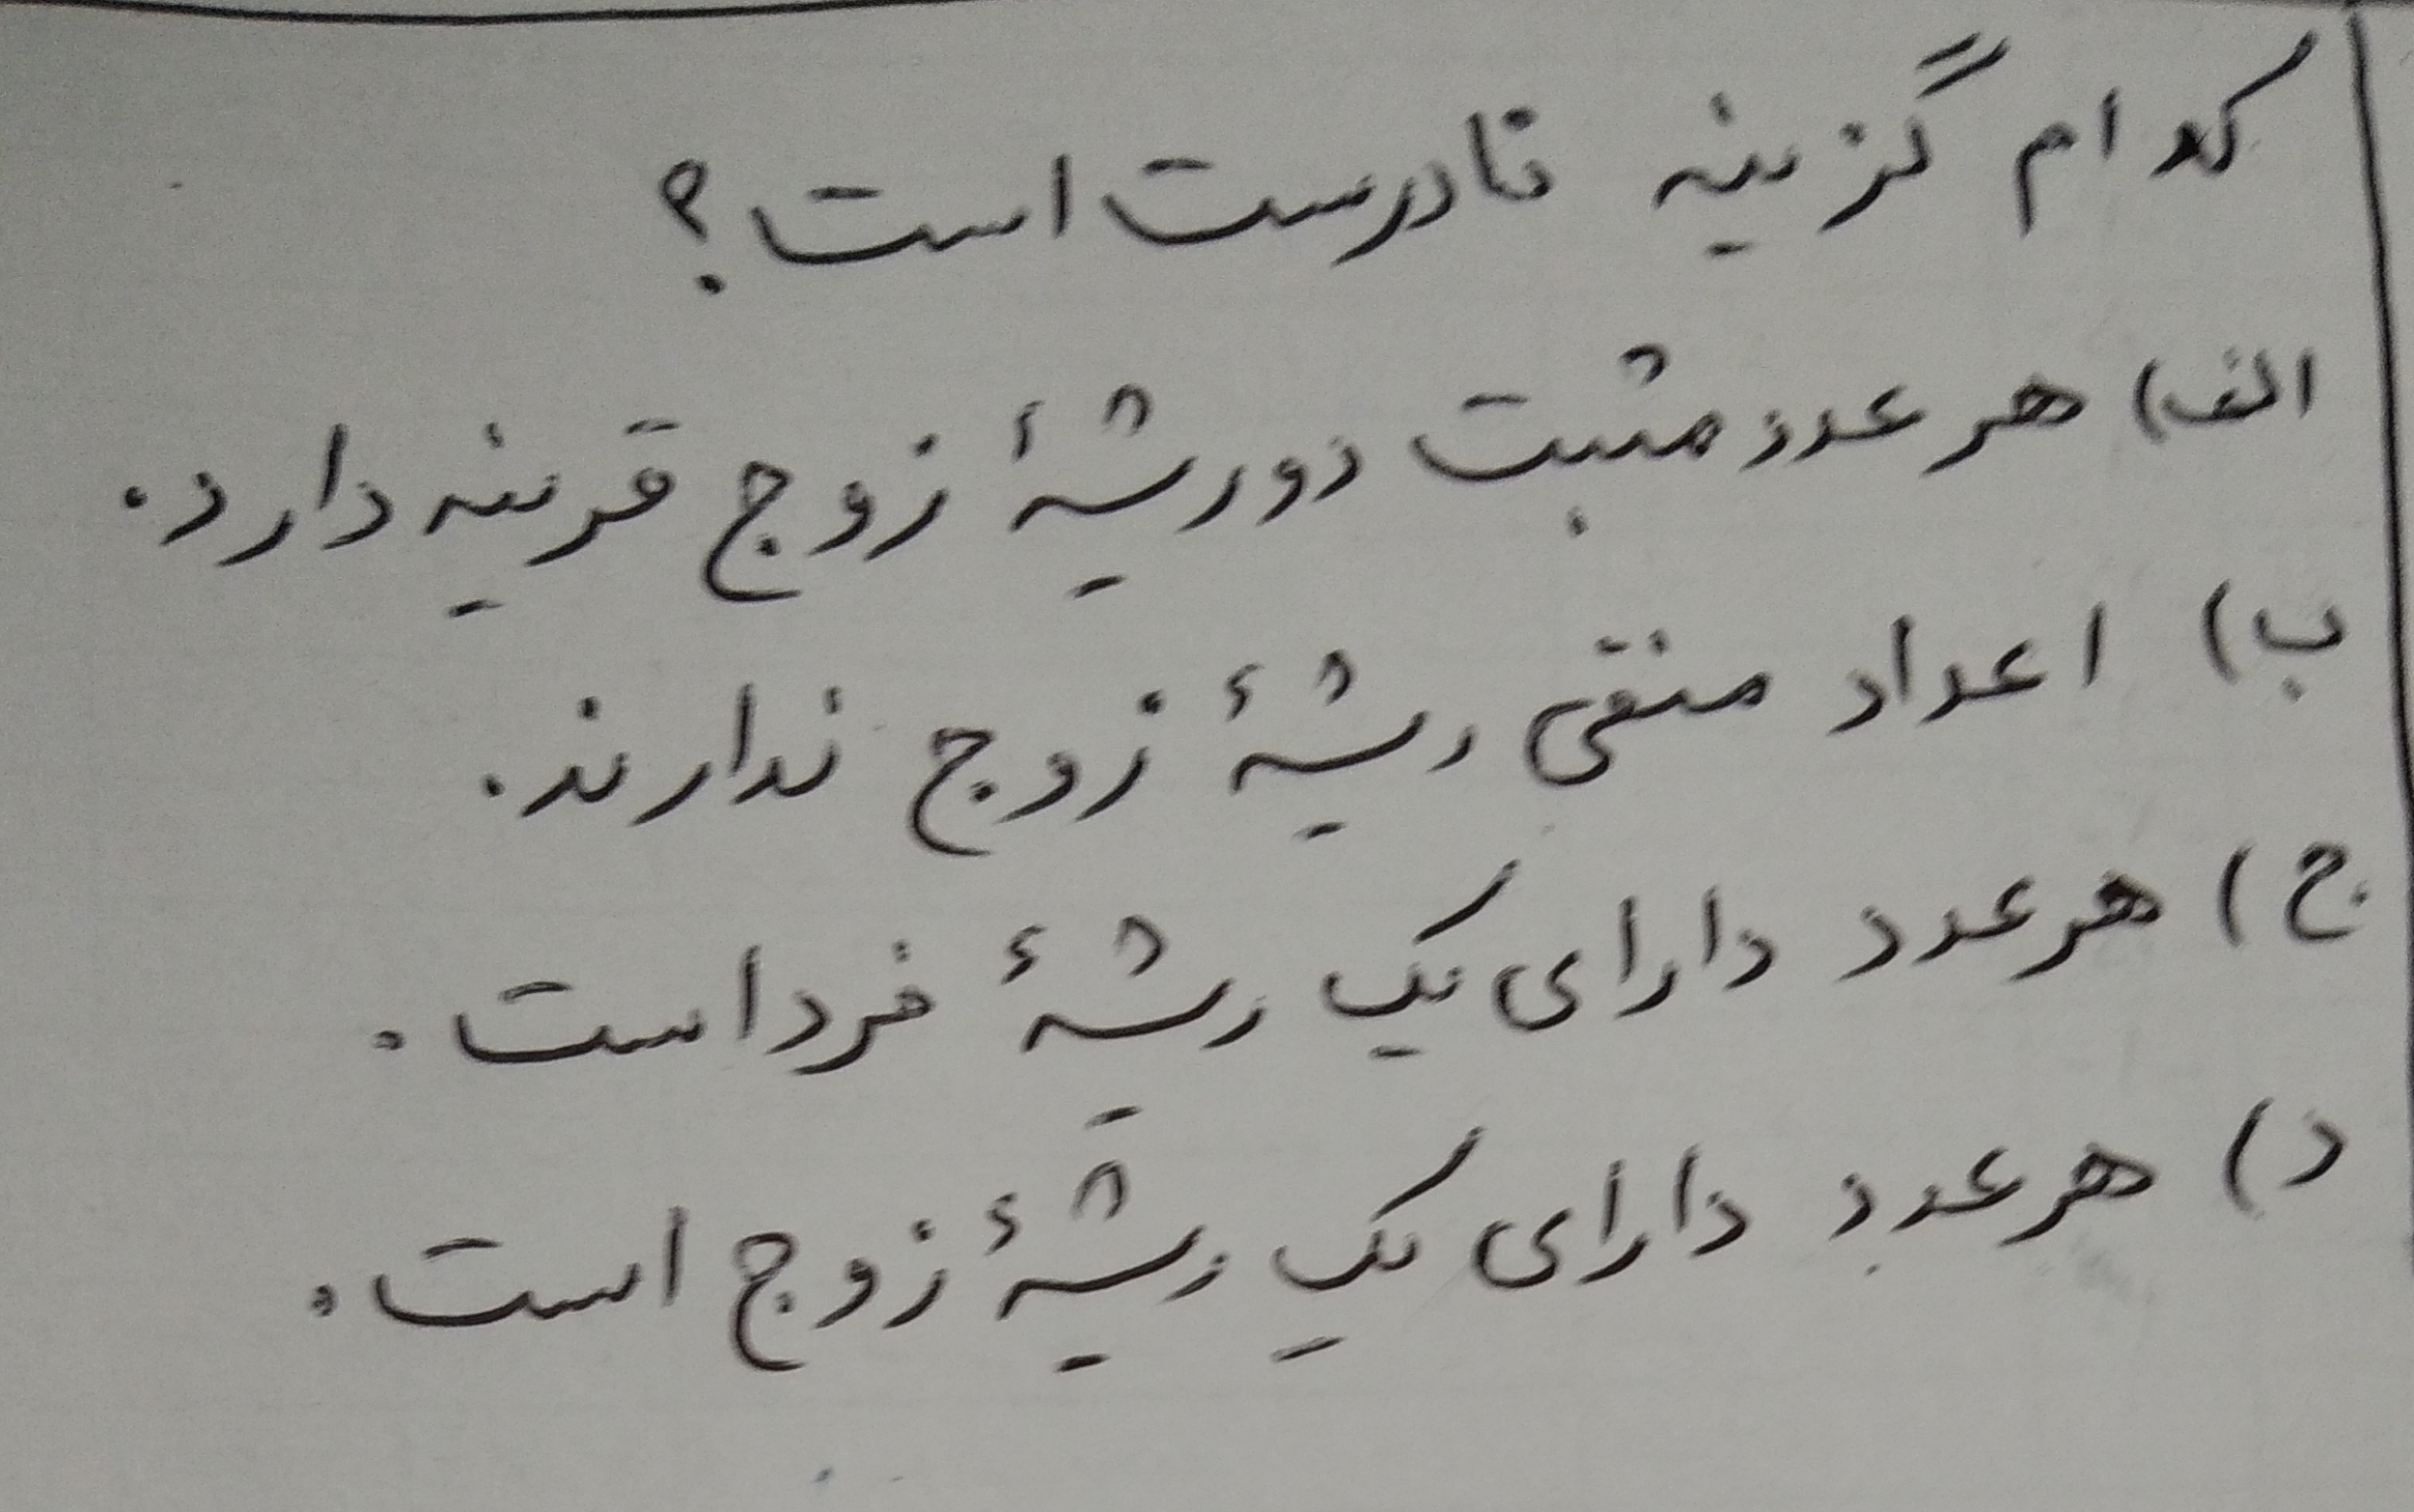 کدام گزینه نادرست است؟
الف) هر عدد مثبت دو ریشهٔ زوج قرینه دارد.
ب) اعداد منفی ریشهٔ زوج ندارند.
ج) هر عدد دارای یک ریشهٔ فرد است.
د) هر عدد دارای یک ریشهٔ زوج است.